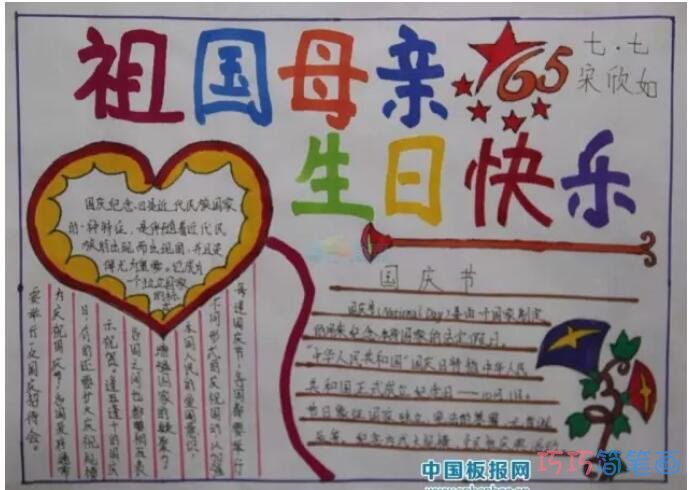 祖国母亲 65
七.七
宋欣如
生日快乐
国庆纪念日是近代民族国家
的一种特征，是伴随着近代民
族国家的出现而出现的，并且变
得尤为重要。它成为
一个独立国家
的标
国庆节
国庆节(National Day)是由一个国家制定
的用来纪念国家的法定假日。
"中华人民共和国"国庆日特指中华人民
共和国正式成立纪念日——10月1日。
每逢国庆节，各国都要举行
不同形式的庆祝活动，以加强
本国人民的爱国意识，
增强国家的凝聚力。
各国之间也都要相互表
示祝贺。逢五逢十的国庆
日，有的还要扩大庆祝规模。
为庆祝国庆节，各国政府通常
要举行一次国庆招待会。
中国板报网
巧巧简笔画